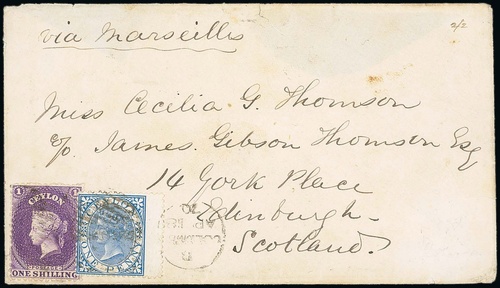 via Marseilles
2/2
Miss Cecilia G. Thomson
c/o James Gibson Thomson Esq
14 York Place
Edinburgh
Scotland.
1 CEYLON 1
POSTAGE
ONE SHILLING
PENNY